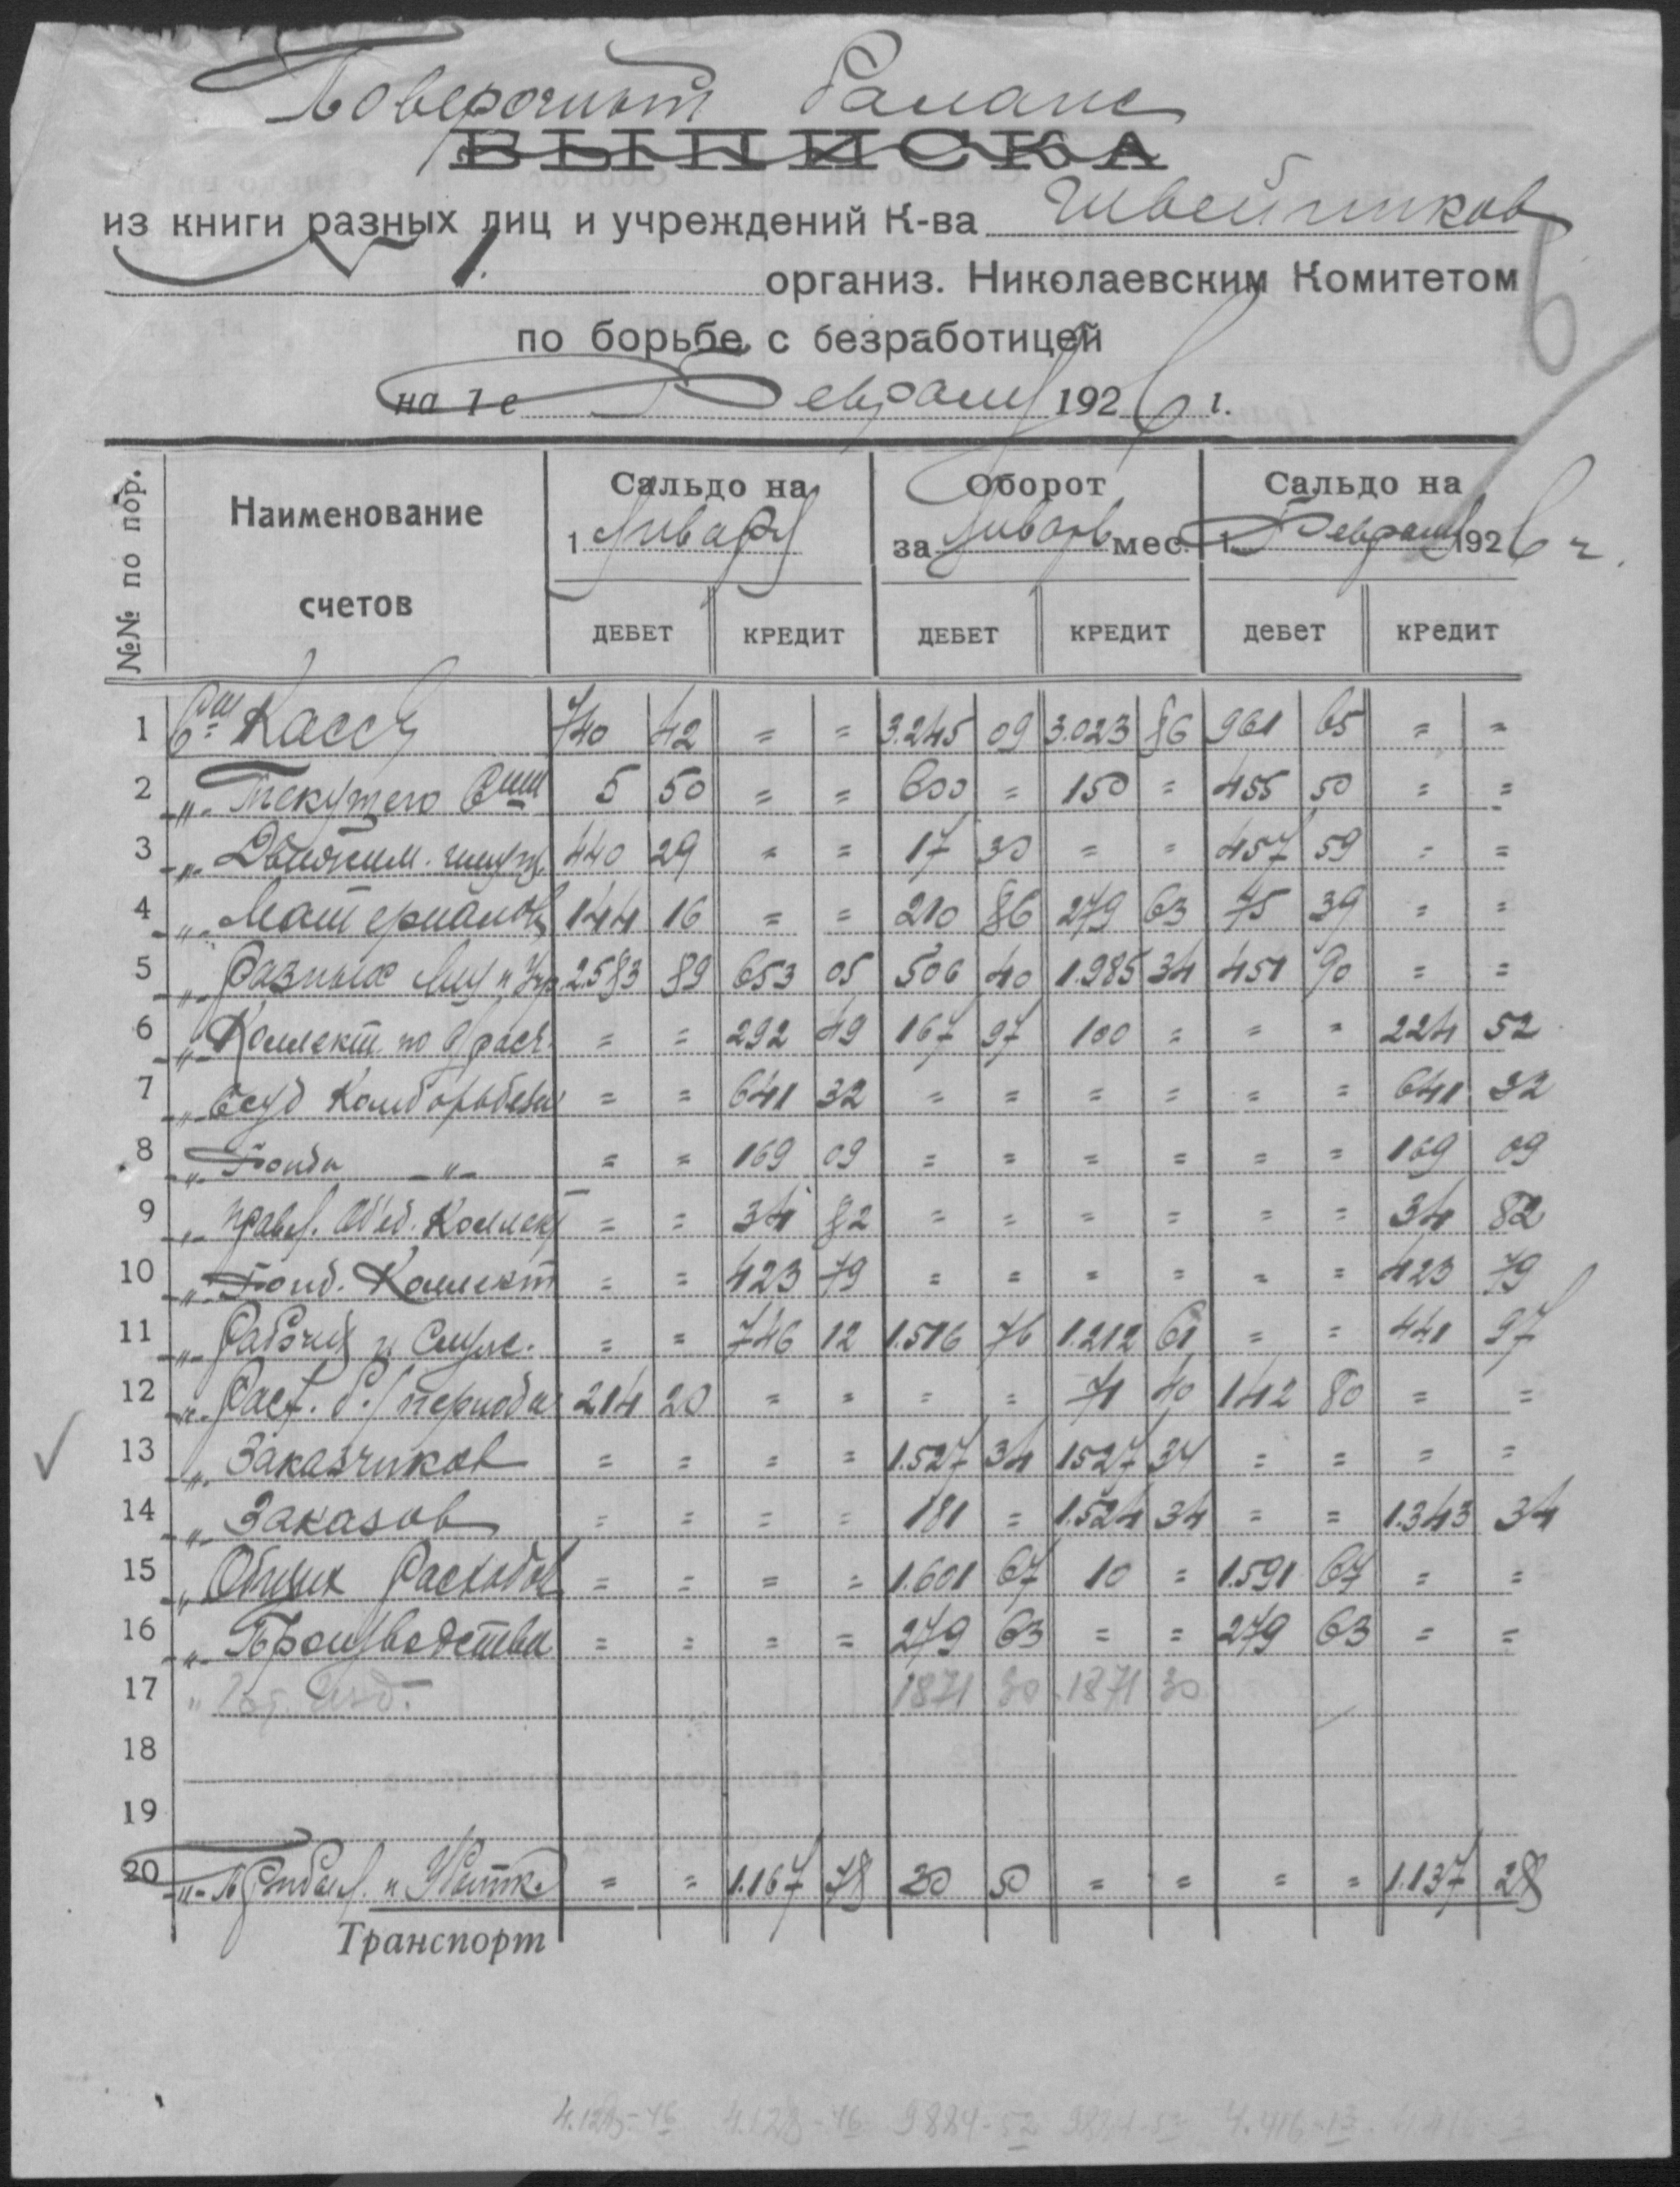 Поверочный Баланс
ВЫПИСКА
из книги разных лиц и учреждений К-ва Швейников
№ 1. организ. Николаевским Комитетом
по борьбе с безработицей
на 1е Февраля 1926 г.
6
№№ по пор. Наименование счетов Сальдо на 1 Января Оборот за Январь мес. Сальдо на 1 Февраля 1926 г.
ДЕБЕТ КРЕДИТ ДЕБЕТ КРЕДИТ дебет кредит
1 Сч. Кассы 740 42 = = 3.245 09 3.023 86 961 65 = =
2 „ Текущего Счета 5 50 = = 600 = 150 = 455 50 = =
3 „ Движим. имущ. 440 29 = = 17 30 = = 457 59 = =
4 „ Материалов 144 16 = = 210 86 279 63 75 39 = =
5 „ Разных Лиц и Учр. 2.583 89 653 05 506 40 1.985 34 451 90 = =
6 „ Коллект. по = = 292 49 167 97 100 = = = 224 52
7 „ Ссуд Комборьбеза = = 641 32 = = = = = = 641 32
8 „ Фонда „ = = 169 09 = = = = = = 169 09
9 „ Правл. Об'ед. Коллект = = 34 82 = = = = = = 34 82
10 „ Фонд. Коллект = = 423 79 = = = = = = 423 79
11 „ Рабочих и Служ. = = 746 12 1.516 76 1.212 61 = = 441 97
12 „ Расх. б./периода 214 20 = = = = 71 40 142 80 = =
13 „ Заказчиков = = = = 1.527 34 1527 34 = = = =
14 „ Заказов = = = = 181 = 1.524 34 = = 1.343 34
15 „ Общих Расходов = = = = 1.601 67 10 = 1.591 67 = =
16 „ Производства = = = = 279 63 = = 279 63 = =
17 „ Гот. Изд. 1871 30 1871 30
18
19
20 „ Прибыл. и Убытк. = = 1.167 78 30 50 = = = = 1.137 28
Транспорт
4.128-46 4.128-46 9884-52 9884-52 4.416-13 4.416-13